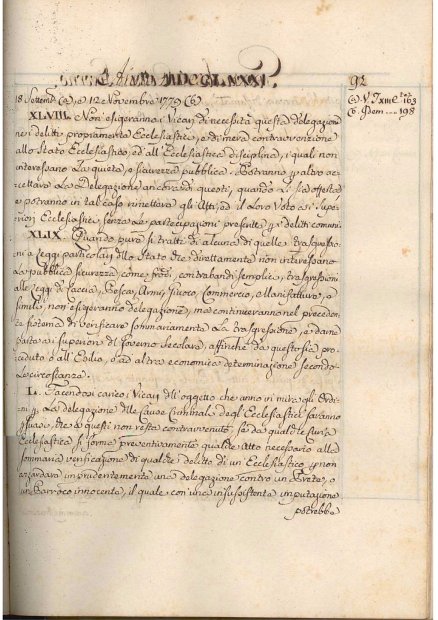 MDCCLXXXI.
92
18 Settemb. (a), e 12 Novembre 1779 (b)
(a) V. T. XIII. C. 163
(b) Idem .... 198
XLVIII. Non esigeranno i Vicarj di necessità questa delegazione
nei delitti propriamente Ecclesiastici, e di mera contravvenzione
allo Stato Ecclesiastico, ed all'Ecclesiastica disciplina, i quali non
interessano la quiete, e sicurezza pubblica. Potranno altro ac-
cettare la Delegazione ancora di questi, quando li sia offerta
e potranno in tal caso rimettere gli Atti, ed il Loro Voto ai Supe-
riori Ecclesiastici, senza la partecipazione presente p i delitti comuni
XLIX. Quando pure si tratti di alcuna di quelle trasgressio-
ni a Leggi particolari dello Stato che direttamente non interessano
la pubblica sicurezza, come frodi, contrabandi semplici, trasgressioni
alle Leggi di Caccia, Pesca, Armi, Giuoco, Commercio, Manifatture, e
simili, non esigeranno delegazione, ma continueranno nel preceden-
te sistema di verificare sommariamente la trasgressione, e darne
parte ai Superiori di Governo Secolare, affinchè da questo sia pro-
ceduto o all'Esilio, o ad altra economica determinazione secondo
le circostanze.
L. Facendosi carico i Vicarj dell'oggetto che anno in mira gli Ordi-
ni p la delegazione delle Cause Criminali degli Ecclesiastici saranno
persuasi, che a questi non resta contravvenuto, se da qualche Curia
Ecclesiastica si forma preventivamente qualche Atto necessario alla
sommaria verificazione di qualche delitto di un Ecclesiastico p non
azzardare imprudentemente una delegazione contro un Prete, o
un Parroco innocente, il quale con una insussistente imputazione
potrebbe